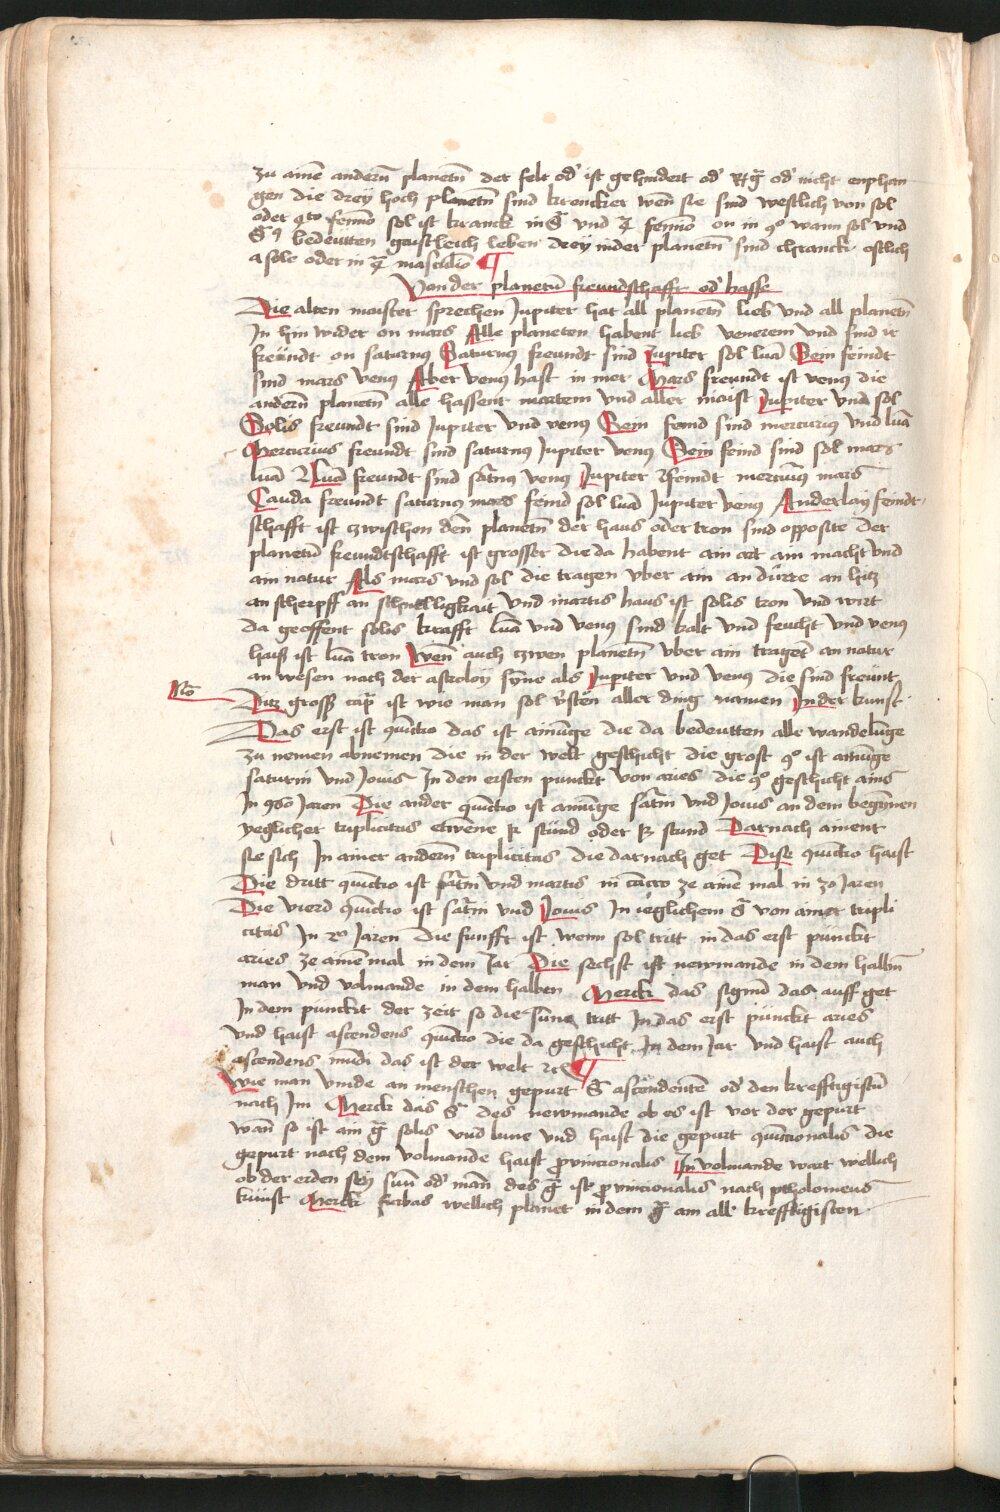 zu aine andern planetn der felt od ist gehindert od Rtg od nicht enphan
gen die drey hoch planetn sind krencker wen sie sind westlich von sol
oder femino sol ist kranck in und femino on in wann sol und
bedeutten gaistleich leben drey nider planetn sind chranck ostlich
a sole oder in masculino
Von der planetn freundschafft od hasse
Die alten maister sprechen Jupiter hat all planetn lieb vnd all planetn
In hin wider on mars Alle planeten habent lieb venerem vnd sind ir
freundt on saturnus Saturnus freundt sind Jupiter sol luna Sein feindt
sind mars venus Aber venus hast in mer Mars freundt ist venus die
andern planetn alle hassent martem vnd aller maist Jupiter vnd sol
Solis freundt sind Jupiter vnd venus Sein feind sind mercurius vnd lua
Mercurius freundt sind saturnus Jupiter venus Sein feind sind sol mars
lua Lua freundt sind satnus venus Jupiter feindt mercurius mars
Cauda freundt saturnus mars feind sol lua Jupiter venus Anderlay feindt
schafft ist czwischon den planetn der haus oder tron sind opposite der
planetn freundtschafft ist grosser die da habent ain art ain macht vnd
ain natur Als mars vnd sol die tragen vber ain an durre an hitz
an scherpff an schnelligkait vnd martis haus ist solis tron vnd wirt
da geoffent solis krafft lua vnd venus sind kalt vnd feucht vnd venus
haus ist lua tron Wen auch czwen planetn vber ain traget an natur
an wesen nach der astroloy synne als Jupiter vnd venus die sind freunt
No
Ditz gross cap ist wie man sol aller ding namen In der kunst
Das erst ist quinctio das ist ainunge die da bedeutten alle wandelunge
zu nemen abnemen die in der welt geschicht die grost ist ainunge
saturni vnd Jouis In den ersten punckt von aries die geschicht ains
In 960 Jaren Die ander quinctio ist ainunge satni vnd Jouis an dem begynnen
yeglicher triplicitas etwenne stund oder stund Darnach ainent
sie sich In ainer andern triplicitas die darnach get Dise quinctio haist
Die dritt quinctio ist satni vnd martis in cancro ze ainem mal in 30 Jaren
Die vierd quinctio ist satni vnd Jouis In ieglichem von ainer tripli
citas In 20 Jaren Die funfft ist wenn sol tritt in das erst punckt
aries ze ainem mal in dem Jar Die sechst ist newmande in dem halbm
man vnd volmande in dem halben Merck das signum das auff get
In dem punckt der zeit so die sunne tritt In das erst punckt aries
vnd haist ascendens quinctio die da geschicht In dem Jar vnd haist auch
ascendens mundi das ist der welt
Wie man vinde an menschen gepurt ascendenten od den krefftigistn
nach Im Merck das des newmande ob es ist vor der gepurt
wan so ist ain solis vnd lune vnd haist die gepurt quinctionalis die
gepurt nach dem volmande haist prvincionalis In volmande wart wellich
ob der erden sey sun od man des ist prvincionalis nach ptholomeus
kunst Merck furbas wellich planet in dem am all krefftigisten